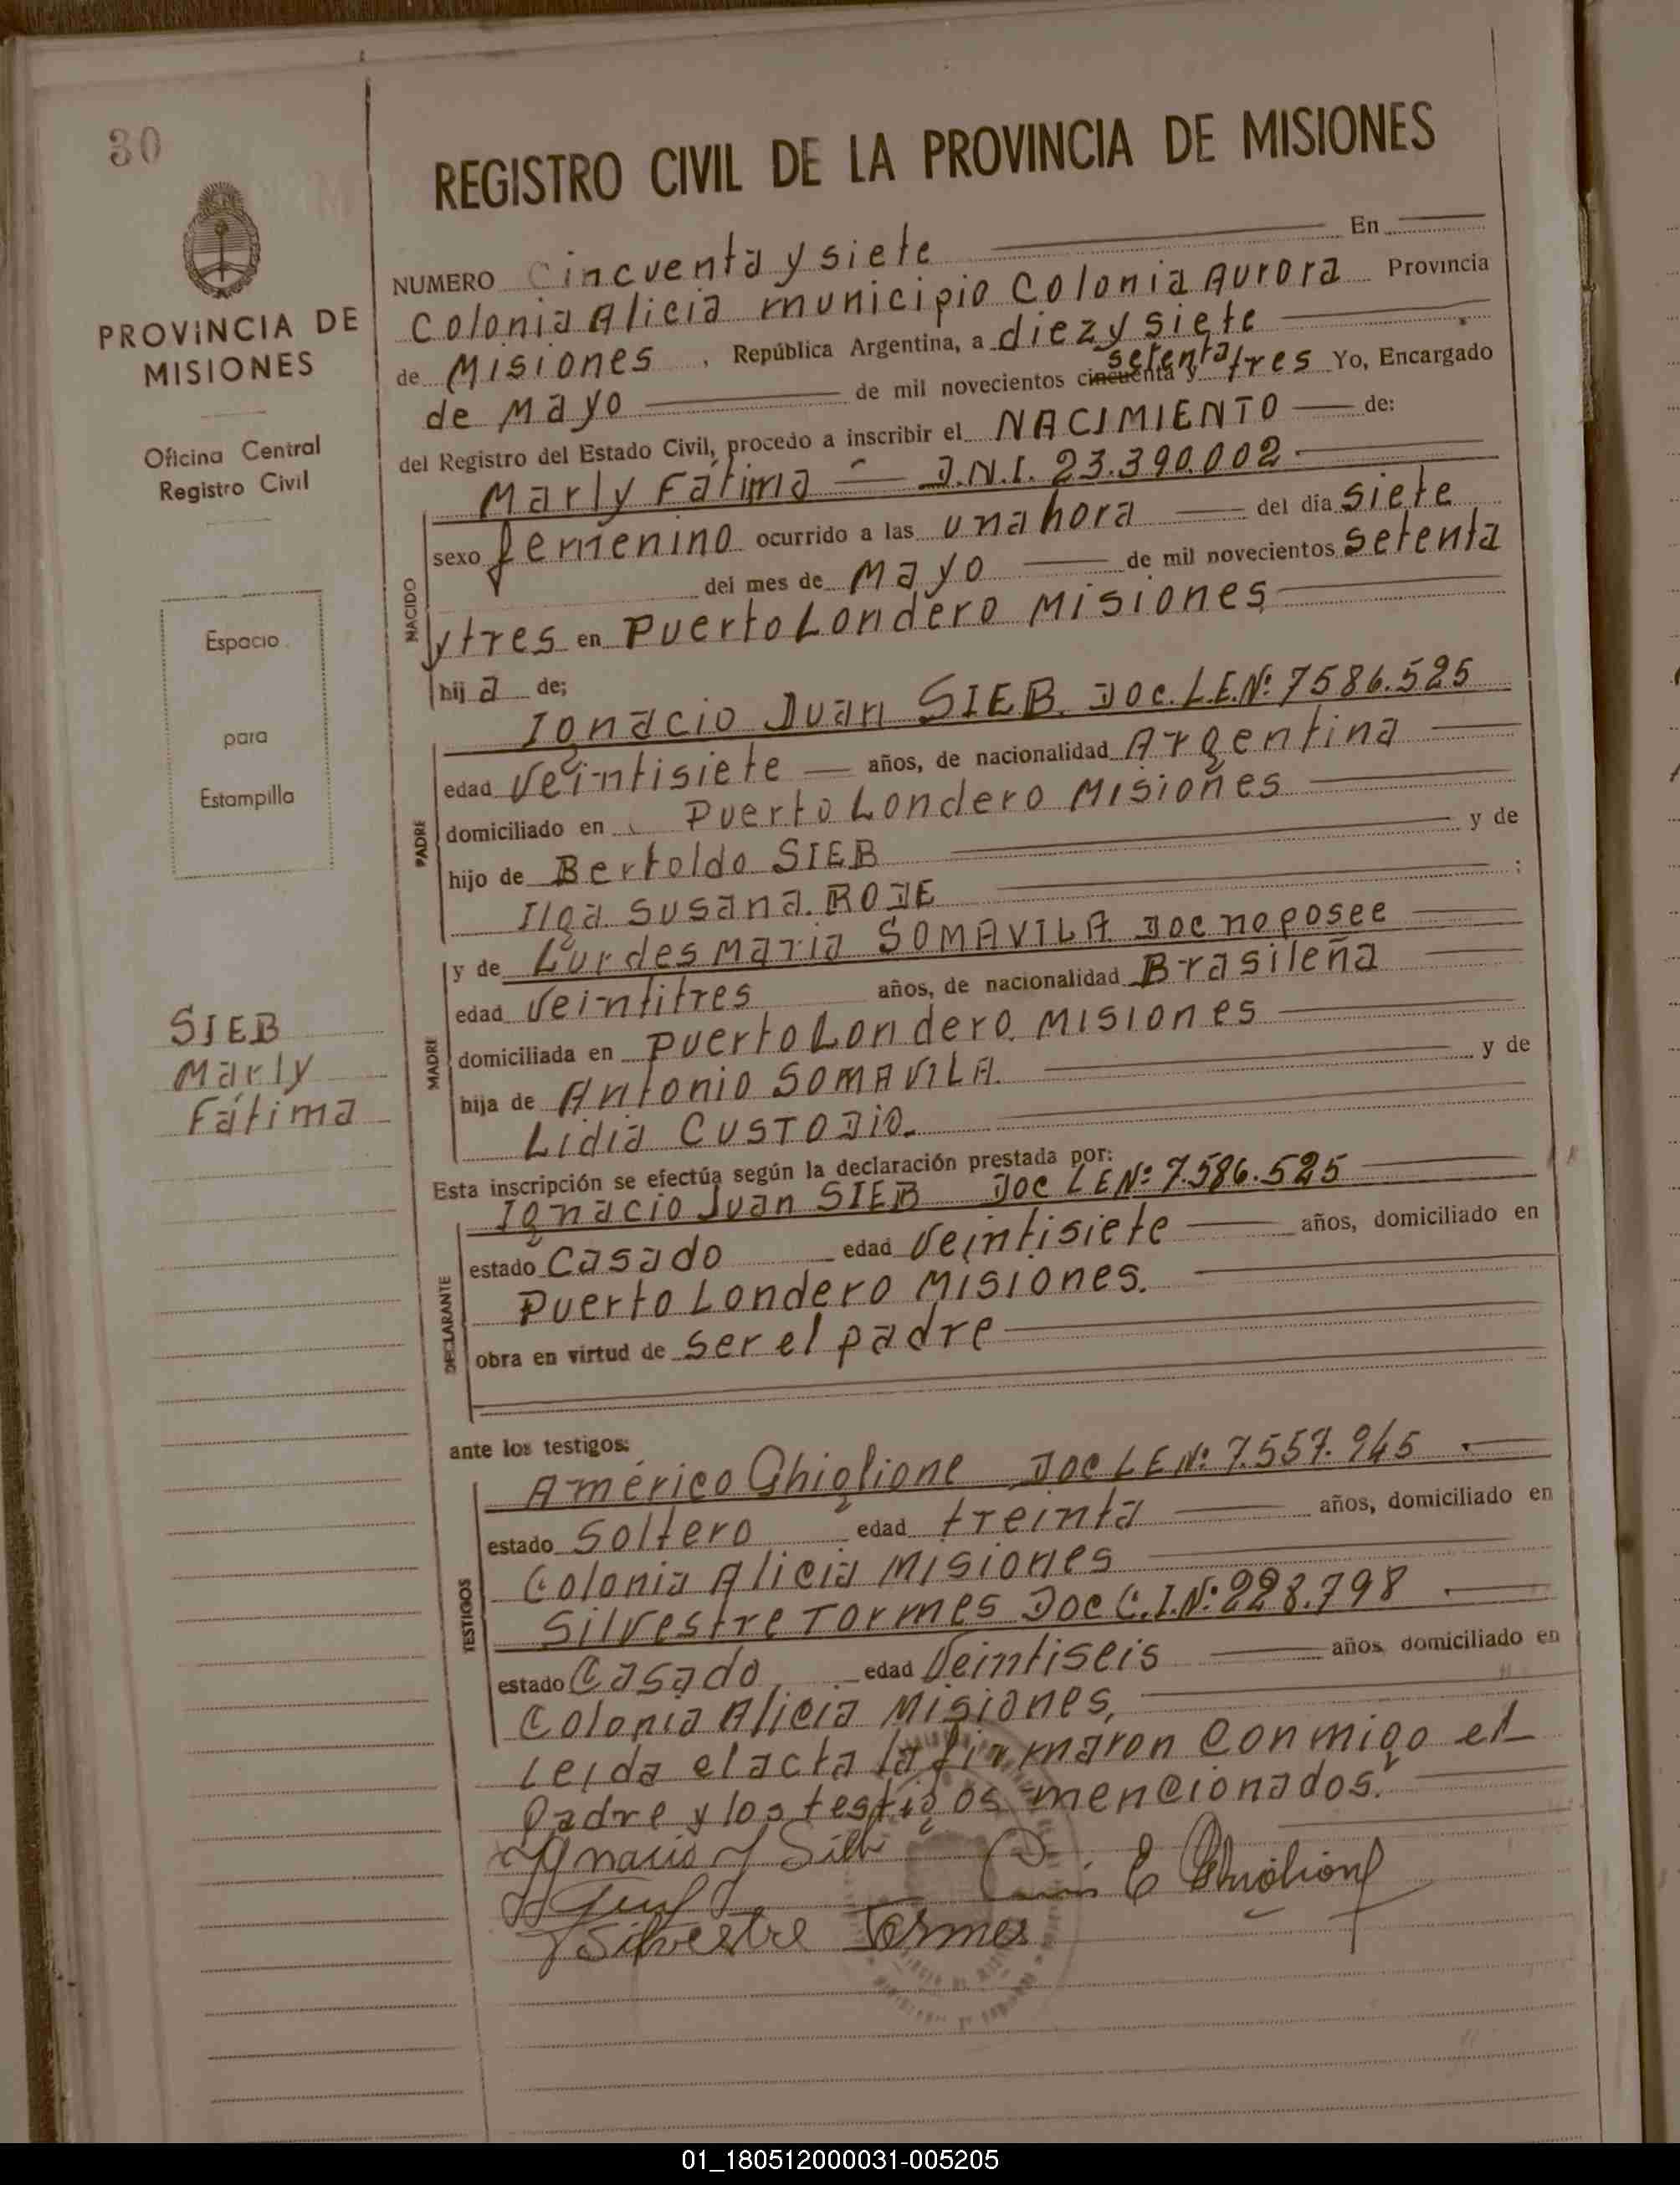 30
PROVINCIA DE
MISIONES
Oficina Central
Registro Civil
Espacio
para
Estampilla
SIEB
Marly
Fátima
REGISTRO CIVIL DE LA PROVINCIA DE MISIONES
NUMERO Cincuenta y siete En
Colonia Alicia municipio Colonia Aurora Provincia
de Misiones, República Argentina, a diez y siete
de Mayo de mil novecientos cincuenta y setenta tres Yo, Encargado
del Registro del Estado Civil, procedo a inscribir el NACIMIENTO de:
Marly Fátima D.N.I. 23.390.002
NACIDO
sexo femenino ocurrido a las una hora del día siete
del mes de Mayo de mil novecientos setenta
y tres en Puerto Londero Misiones
hija de;
Ignacio Juan SIEB. Doc. L.E. Nº 7586.525
PADRE
edad Veintisiete años, de nacionalidad Argentina
domiciliado en Puerto Londero Misiones
hijo de Bertoldo SIEB y de
Ilga Susana. RODE ;
y de Lurdes Maria SOMAVILA Doc no posee
MADRE
edad Veintitres años, de nacionalidad Brasileña
domiciliada en Puerto Londero. Misiones
hija de Antonio SOMAVILA. y de
Lidia CUSTODIO.
Esta inscripción se efectúa según la declaración prestada por:
Ignacio Juan SIEB Doc L E Nº 7.586.525
DECLARANTE
estado Casado edad Veintisiete años, domiciliado en
Puerto Londero Misiones.
obra en virtud de ser el padre
ante los testigos:
Américo Ghiglione Doc L E Nº 7.557.945
TESTIGOS
estado Soltero edad treinta años, domiciliado en
Colonia Alicia Misiones
Silvestre Tormes Doc C.I.Nº 228.798
estado Casado edad Veintiseis años domiciliado en
Colonia Alicia Misiones,
Leida el acta la firmaron conmigo el
Padre y los testigos mencionados.
Ygnacio J Sieb
E Ghiglione
Silvestre Tormes
01_180512000031-005205